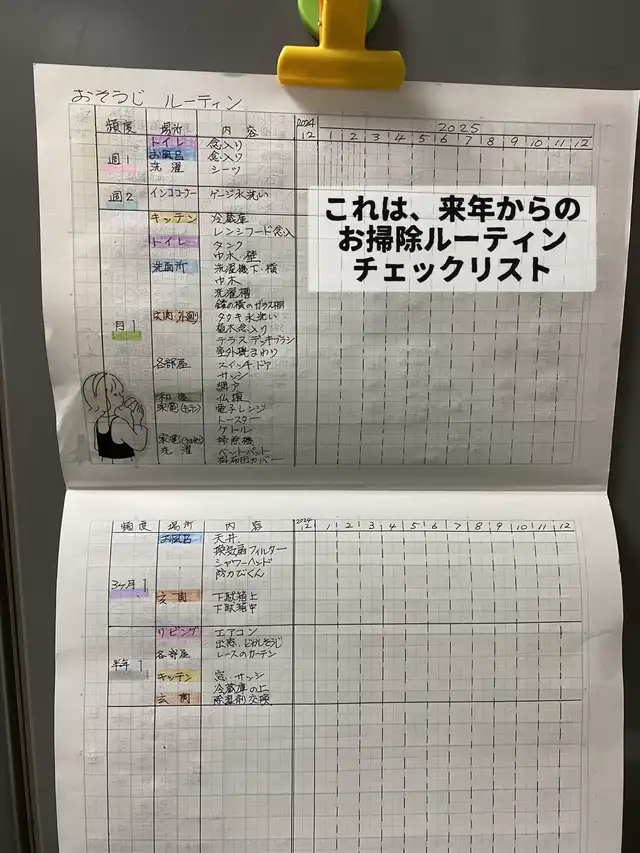 おそうじ ルーティン
頻度 場所 内容 2024 12 2025 1 2 3 4 5 6 7 8 9 10 11 12
週1 トイレ 念入り
お風呂 念入り
洗濯 シーツ
週2 インココーナー ゲージ水洗い
これは、来年からの
お掃除ルーティン
チェックリスト
月1 キッチン 冷蔵庫
レンジフード念入
トイレ タンク
巾木・壁
洗面所 洗濯機下・横
巾木
洗濯槽
鏡の横のガラス棚
玄関(外廻り) タタキ水洗い
植木念入り
テラス デッキブラシ
室外機まわり
各部屋 スイッチ・ドア
サッシ
網戸
和室 仏壇
家電(キッチン) 電子レンジ
トースター
ケトル
家電(その他) 掃除機
洗濯 ベットパット
掛布団カバー
頻度 場所 内容 2024 12 1 2 3 4 5 6 7 8 9 10 11 12
3ヶ月1 お風呂 天井
換気扇フィルター
シャワーヘッド
防カビくん
玄関 下駄箱上
下駄箱中
半年1 リビング エアコン
出窓
各部屋 レースのカーテン
キッチン 窓・サッシ
冷蔵庫の上
玄関 除湿剤交換